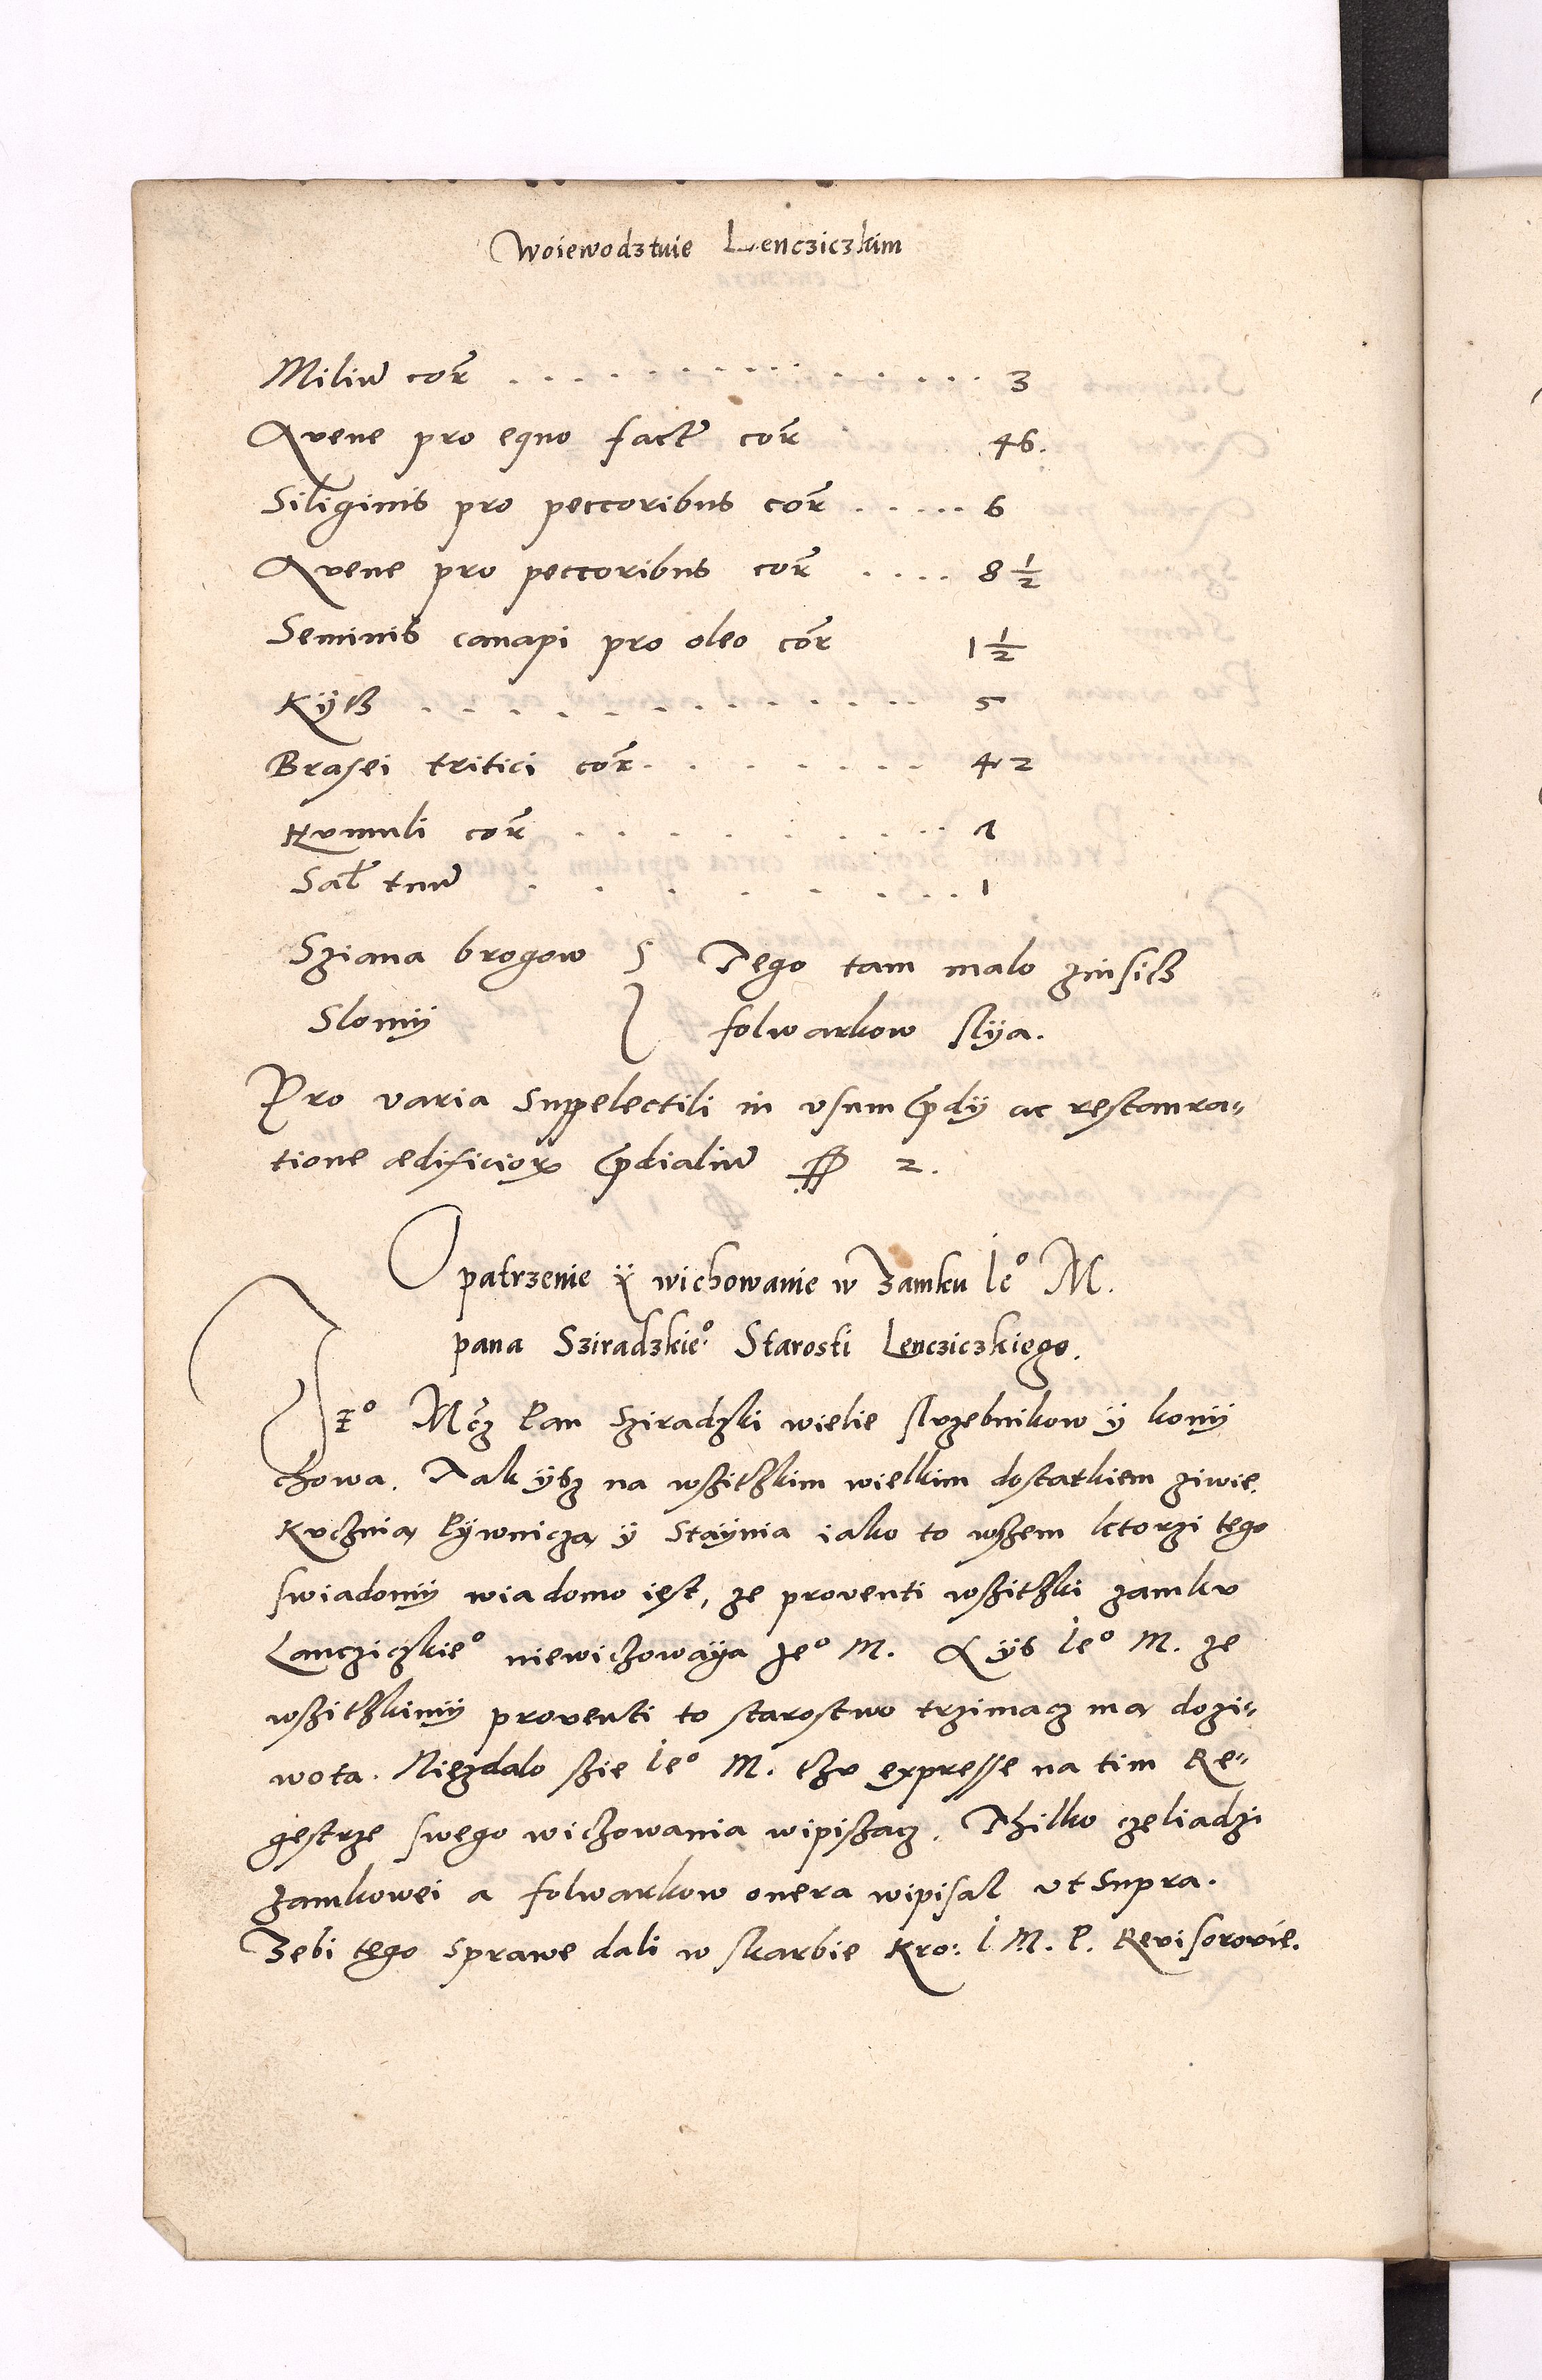 Woiewodztwie Lencziczkim
Miliu͂ cor͂ . . . . . . . . . . . . . . 3
Avene pro equo fact͂ cor͂ 46.
Siliginis pro peccoribus cor͂ . . . . . 6
Avene pro peccoribus cor͂ . . . . 8 1/2
Seminis canapi pro oleo cor͂ 1 1/2
Kÿtß . . . . . . . . . . . . 5
Brasei tritici cor͂ . . . . . . . 42
Humuli cor͂ . . . . . . . . . 1
Sal͂ tuu͂ . . . . . . . . . 1
Sziana brogow 5 } Tego tam malo
Slomÿ } folwarkow slÿa.
Pro varia suppelectili in usum p͂dÿ ac restaura-
tione ædificioꝝ p͂dialiu͂ 2.
Opatrzenie ÿ wichowanie w Zamku Ie° M.
pana Sziradzkie°. Starosti Lencziczkiego.
Je° Mc͂z Pan Sziradzki wielie sluzebnikow ÿ konÿ
chowa. Tak ÿsz na wszithkim wielkim dostatkiem ziwie.
Kuchnia, Pÿwnicza, ÿ Staÿnia iako to wszem ktorzi tego
swiadomÿ wiadomo iest, ze proventi wszithki zamku
Lancziczkie° niewichowaÿa Je° M. A ÿs Ie° M. ze
wszithkimÿ proventi to starostwo trzimacz ma dozi-
wota. Niezdalo szie Ie° M. thu expresse na tim Re-
gestrze swego wichowania wipiszacz. Thilko czeliadzi
zamkowei a folwarkow onera wipisal ut supra.
Zebi tego sprawe dali w skarbie Kro: I. M. P. Revisorovie.